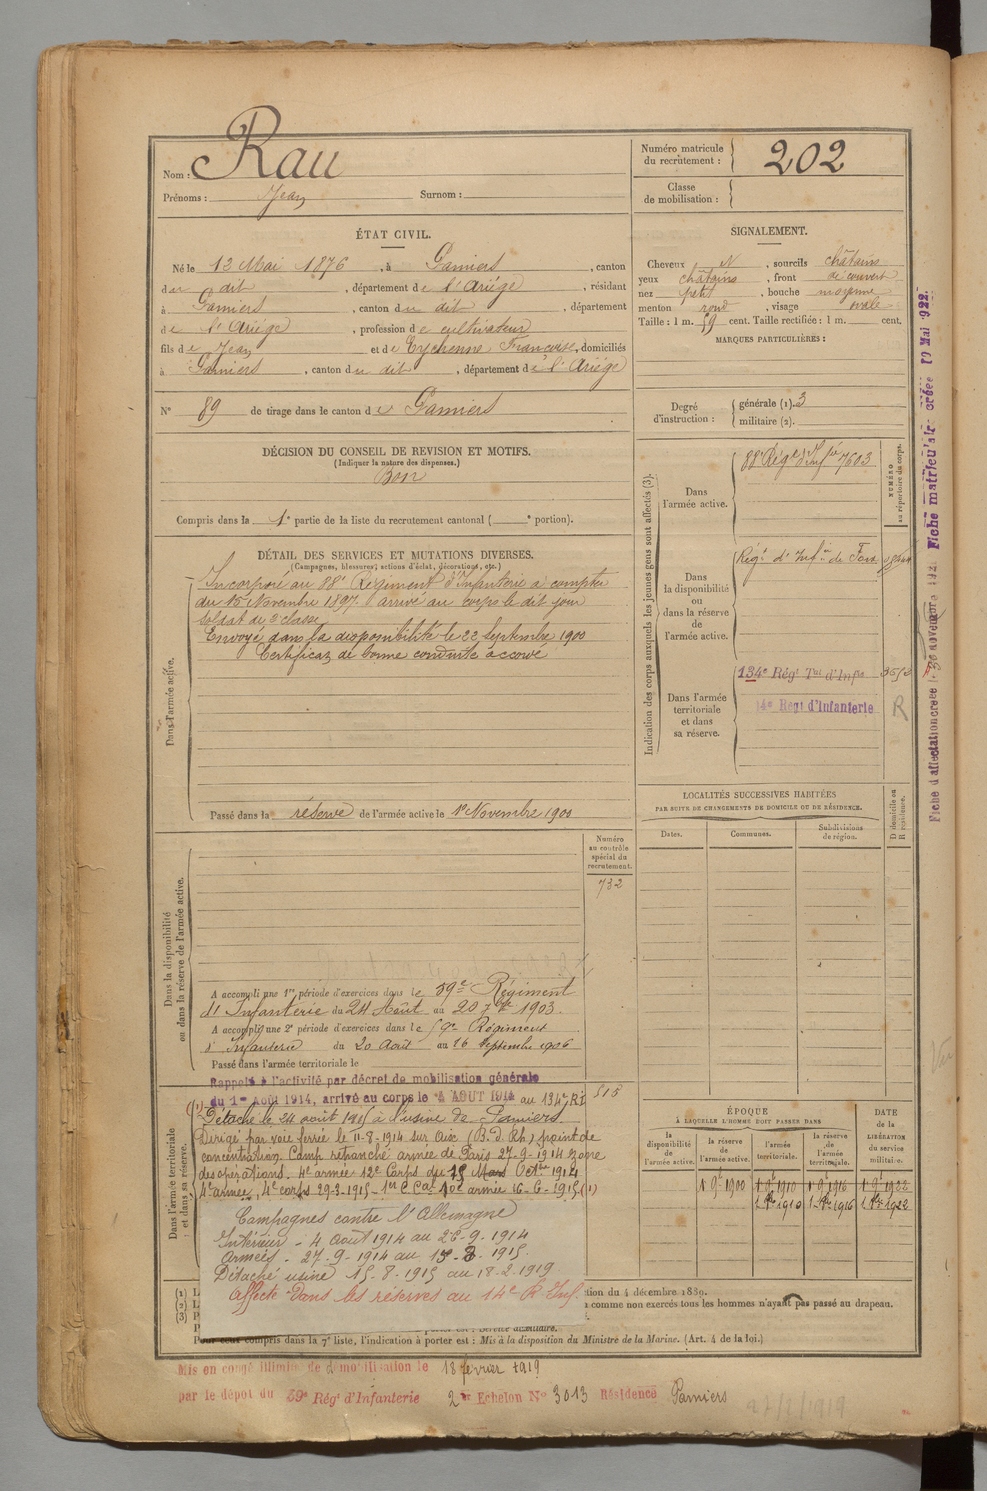 Nom : Rau
Prénoms : Jean Surnom :
Numéro matricule du recrutement : 202
Classe de mobilisation :
ÉTAT CIVIL.
Né le 13 Mai 1876, à Pamiers, canton
du dit, département de l'Ariège, résidant
à Pamiers, canton du dit, département
de l'Ariège, profession de cultivateur
fils de Jean et de Eychenne Françoise, domiciliés
à Pamiers, canton du dit, département de l'Ariège
N° 89 de tirage dans le canton de Pamiers
SIGNALEMENT.
Cheveux N, sourcils châtains
yeux châtains, front découvert
nez petit, bouche moyenne
menton rond, visage ovale
Taille : 1 m. 59 cent. Taille rectifiée : 1 m. cent.
MARQUES PARTICULIÈRES :
Degré d'instruction : générale (1). 3
militaire (2).
DÉCISION DU CONSEIL DE REVISION ET MOTIFS.
(Indiquer la nature des dispenses.)
Bon
Compris dans la 1e partie de la liste du recrutement cantonal ( e portion).
DÉTAIL DES SERVICES ET MUTATIONS DIVERSES.
(Campagnes, blessures, actions d'éclat, décorations, etc.)
Dans l'armée active.
Incorporé au 88e Régiment d'Infanterie à compter
du 15 Novembre 1897. arrivé au corps le dit jour
soldat de 2e classe
Envoyé dans la disponibilité le 22 Septembre 1900
Certificat de bonne conduite accordé
Passé dans la réserve de l'armée active le 1er Novembre 1900
Indication des corps auxquels les jeunes gens sont affectés (3).
NUMÉRO au répertoire du corps.
Dans l'armée active.
88e Régt d'Infie 7603
Dans la disponibilité ou dans la réserve de l'armée active.
Régt d'Infie de Foix
Dans l'armée territoriale et dans sa réserve.
134e Régt Tal d'Infie
14e Régt d'Infanterie R
LOCALITÉS SUCCESSIVES HABITÉES
PAR SUITE DE CHANGEMENTS DE DOMICILE OU DE RÉSIDENCE.
Dates. Communes. Subdivisions de région. D domicile ou R résidence.
Dans la disponibilité ou dans la réserve de l'armée active.
Numéro au contrôle spécial du recrutement.
732
A accompli une 1re période d'exercices dans le 59e Régiment
d'Infanterie du 24 Août au 20 7bre 1903.
A accompli une 2e période d'exercices dans le 59e Régiment
d'Infanterie du 20 Août au 16 Septembre 1906
Passé dans l'armée territoriale le
Dans l'armée territoriale et dans sa réserve.
Rappelé à l'activité par décret de mobilisation générale
du 1er Août 1914, arrivé au corps le 4 AOUT 1914 au 134e RI
515
Détaché le 24 août 1915 à l'usine de Pamiers
Dirigé par voie ferrée le 11-8-1914 sur Aix (B. d. Rh.) point de
concentration. Camp retranché armée de Paris 27-9-1914 zone
des opérations. 4e armée 12e Corps du 15 Mars Octbre 1914
4e armée, 4e corps 29-3-1915 - 1er C. Cal 10e armée 16-6-1915 (1)
Campagnes contre l'Allemagne
Intérieur - 4 août 1914 au 26-9-1914
Armées - 27-9-1914 au 13-8-1915
Détaché usine 15-8-1915 au 18-2-1919
Affecté dans les réserves au 14e R. Inf
ÉPOQUE
À LAQUELLE L'HOMME DOIT PASSER DANS
la disponibilité de l'armée active. la réserve de l'armée active. l'armée territoriale. la réserve de l'armée territoriale.
DATE de la LIBÉRATION du service militaire.
1 9e 1900 1 9e 1910 1 9e 1916 1 9e 1922
1 8bre 1910 1 8bre 1916 1 8bre 1922
(1) L
tion du 4 décembre 1889.
(2) L
comme non exercés tous les hommes n'ayant pas passé au drapeau.
(3) P
Pour ceux compris dans la 7e liste, l'indication à porter est : Mis à la disposition du Ministre de la Marine. (Art. 4 de la loi.)
Mis en congé illimité de démobilisation le 18 février 1919
par le dépôt du 59e Régt d'Infanterie 2e Echelon N° 3013 Résidence Pamiers
27/2/1919
Fiche d'affectation créée le 30 novembre 1921 Fiche matriculaire créée 10 Mai 1922